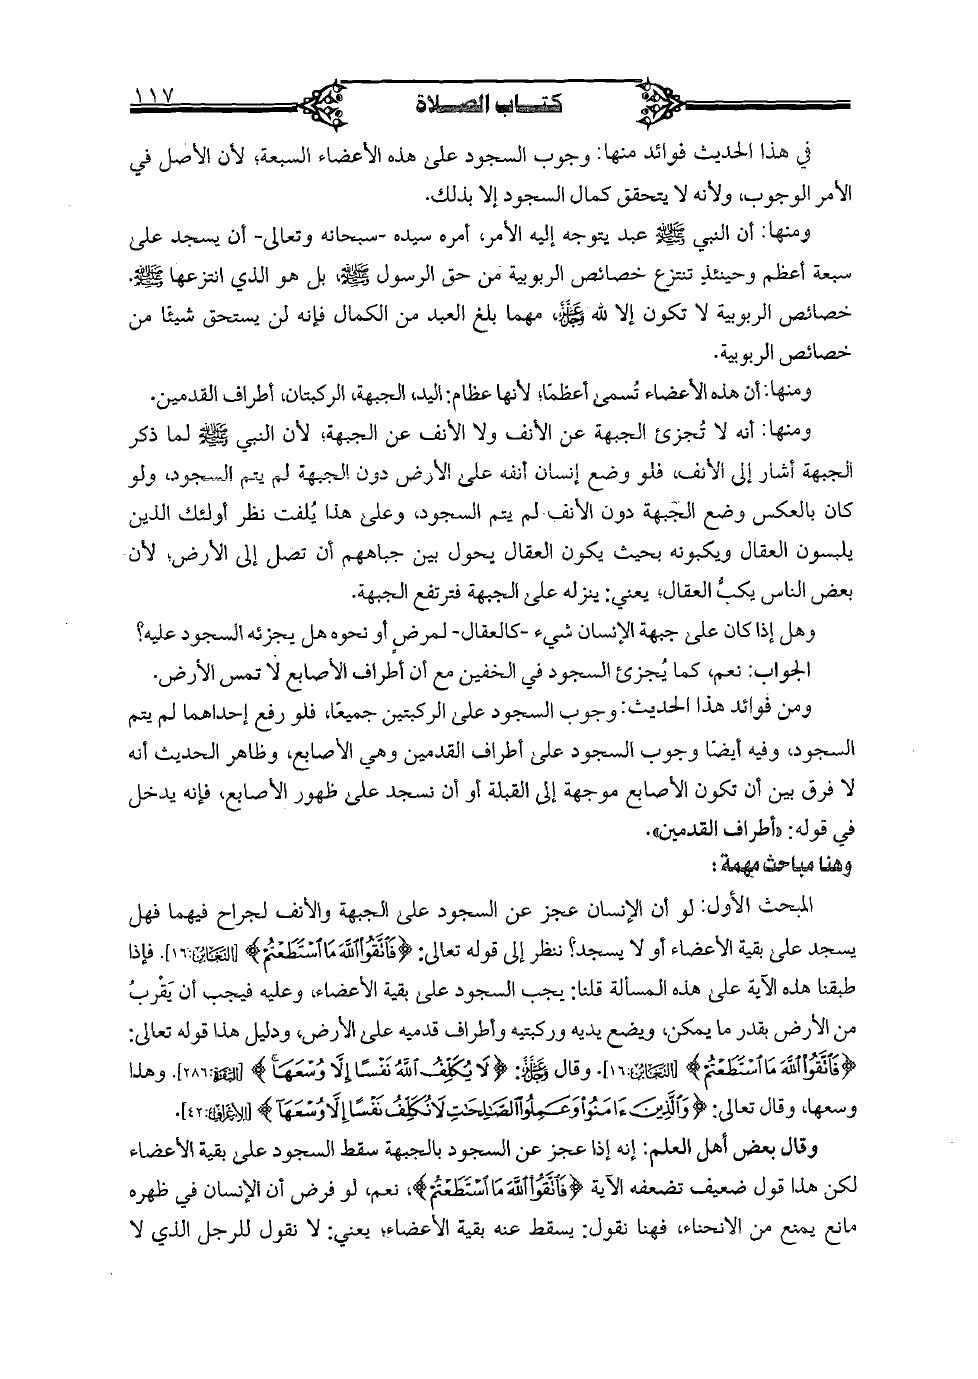 كتاب الصلاة ١١٧
في هذا الحديث فوائد منها: وجوب السجود على هذه الأعضاء السبعة؛ لأن الأصل في
الأمر الوجوب، ولأنه لا يتحقق كمال السجود إلا بذلك.
ومنها: أن النبي ﷺ عبد يتوجه إليه الأمر، أمره سيده -سبحانه وتعالى- أن يسجد على
سبعة أعظم وحينئذٍ تنتزع خصائص الربوبية من حق الرسول ﷺ، بل هو الذي انتزعها ﷺ.
خصائص الربوبية لا تكون إلا لله ﷻ، مهما بلغ العبد من الكمال فإنه لن يستحق شيئًا من
خصائص الربوبية.
ومنها: أن هذه الأعضاء تُسمى أعظمًا؛ لأنها عظام: اليد، الجبهة، الركبتان، أطراف القدمين.
ومنها: أنه لا تُجزئ الجبهة عن الأنف ولا الأنف عن الجبهة؛ لأن النبي ﷺ لما ذكر
الجبهة أشار إلى الأنف، فلو وضع إنسان أنفه على الأرض دون الجبهة لم يتم السجود، ولو
كان بالعكس وضع الجَبهة دون الأنف لم يتم السجود، وعلى هذا يُلفت نظر أولئك الذين
يلبسون العقال ويكبونه بحيث يكون العقال يحول بين جباههم أن تصل إلى الأرض؛ لأن
بعض الناس يكبُّ العقال؛ يعني: ينزله على الجبهة فترتفع الجبهة.
وهل إذا كان على جبهة الإنسان شيء -كالعقال- لمرض أو نحوه هل يجزئه السجود عليه؟
الجواب: نعم، كما يُجزئ السجود في الخفين مع أن أطراف الأصابع لا تمس الأرض.
ومن فوائد هذا الحديث: وجوب السجود على الركبتين جميعًا، فلو رفع إحداهما لم يتم
السجود، وفيه أيضًا وجوب السجود على أطراف القدمين وهي الأصابع، وظاهر الحديث أنه
لا فرق بين أن تكون الأصابع موجهة إلى القبلة أو أن نسجد على ظهور الأصابع، فإنه يدخل
في قوله: «أطراف القدمين».
وهنا مباحث مهمة:
المبحث الأول: لو أن الإنسان عجز عن السجود على الجبهة والأنف لجراح فيهما فهل
يسجد على بقية الأعضاء أو لا يسجد؟ ننظر إلى قوله تعالى: ﴿فَاتَّقُوا اللَّهَ مَا اسْتَطَعْتُمْ﴾ [التغابن: ١٦]. فإذا
طبقنا هذه الآية على هذه المسألة قلنا: يجب السجود على بقية الأعضاء، وعليه فيجب أن يَقْربُ
من الأرض بقدر ما يمكن، ويضع يديه وركبتيه وأطراف قدميه على الأرض، ودليل هذا قوله تعالى:
﴿فَاتَّقُوا اللَّهَ مَا اسْتَطَعْتُمْ﴾ [التغابن: ١٦]. وقال ﷻ: ﴿لَا يُكَلِّفُ اللَّهُ نَفْسًا إِلَّا وُسْعَهَا﴾ [البقرة: ٢٨٦]. وهذا
وسعها، وقال تعالى: ﴿وَالَّذِينَ ءَامَنُوا وَعَمِلُوا الصَّالِحَاتِ لَا نُكَلِّفُ نَفْسًا إِلَّا وُسْعَهَا﴾ [الأعراف: ٤٢].
وقال بعض أهل العلم: إنه إذا عجز عن السجود بالجبهة سقط السجود على بقية الأعضاء
لكن هذا قول ضعيف تضعفه الآية ﴿فَاتَّقُوا اللَّهَ مَا اسْتَطَعْتُمْ﴾، نعم، لو فرض أن الإنسان في ظهره
مانع يمنع من الانحناء، فهنا نقول: يسقط عنه بقية الأعضاء؛ يعني: لا نقول للرجل الذي لا